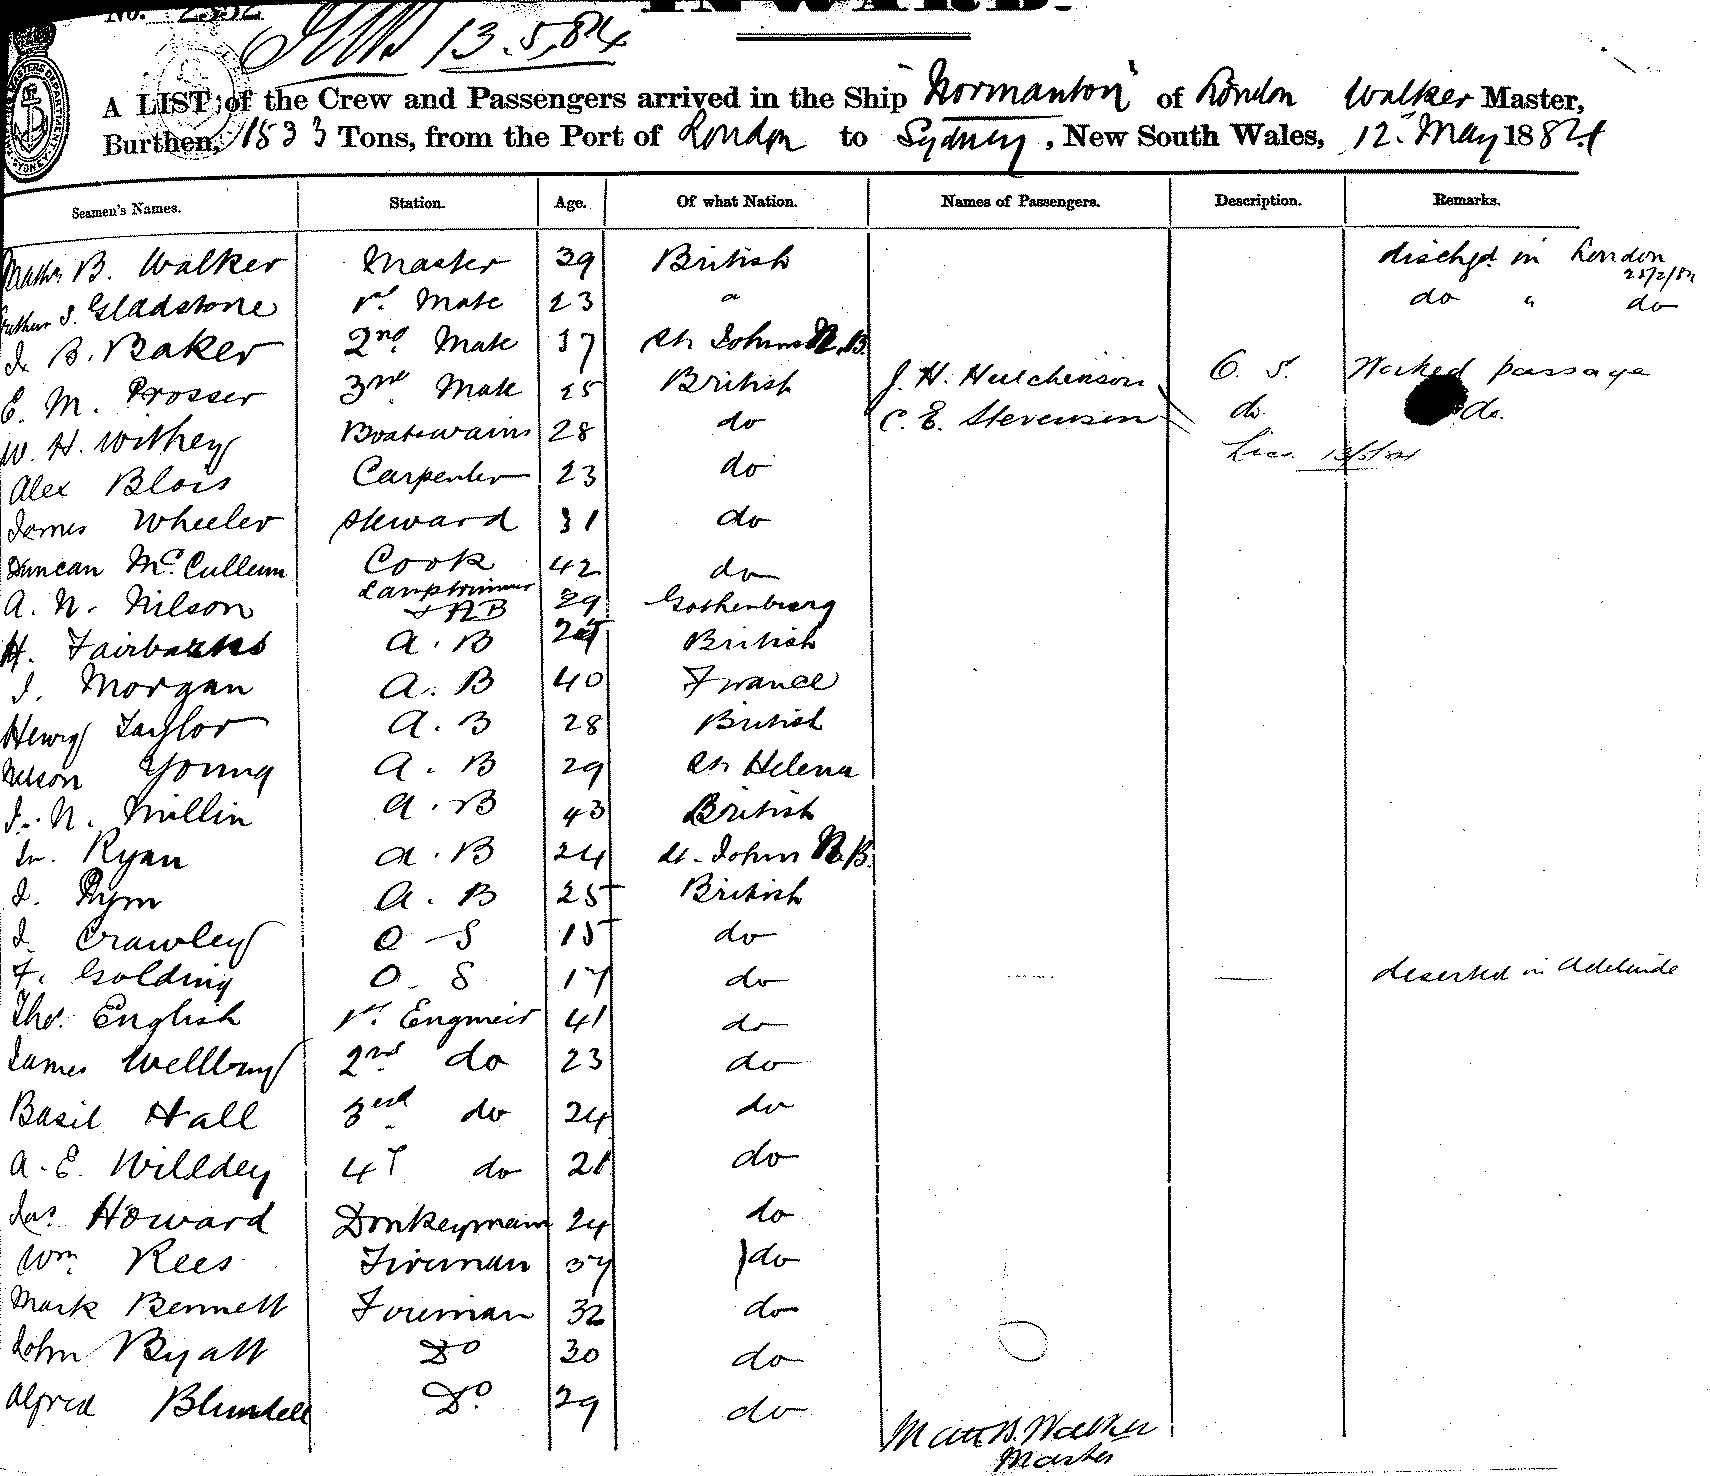 No. 2332
INWARD.
13.5.84
A LIST of the Crew and Passengers arrived in the Ship "Normanton" of London Walker Master,
Burthen, 1533 Tons, from the Port of London to Sydney, New South Wales, 12 May 1884
Seamen's Names. Station. Age. Of what Nation. Names of Passengers. Description. Remarks.
B. Walker Master 39 British dischgd. in London 25/2/84
Gladstone 1st Mate 23 " do " do
B. Baker 2nd Mate 37 St Johns N.B.
E. M. Prosser 3rd Mate 25 British J. H. Hutchinson O. S. Worked passage
W. H. Withey Boatswains 28 do C. E. Stevenson do do.
Alex Blois Carpenter 23 do
James Wheeler Steward 31 do
Duncan McCullum Cook 42 do
A. N. Nilson Lamptrimmer & AB 29 Gothenburg
H. Fairbanks A. B British
J. Morgan A. B 40 France
Henry Taylor A. B 28 British
Nelson Young A. B 29 St Helena
N. Millin A. B 43 British
Ryan A. B 24 St. John N.B.
Pym A. B 25 British
J. Crawley O S 15 do
F. Golding O. S 17 do deserted in Adelaide
Thos. English 1st Engineer 41 do
James Wellbury 2nd do 23 do
Basil Hall 3rd do 24 do
A. E. Willdey 4T do 21 do
Jas. Howard Donkeyman 24 do
Wm. Rees Fireman 37 do
Mark Bennett Foreman 32 do
John Byatt Do 30 do
Alfred Blundell Do. 29 do
Matt B. Walker
Master